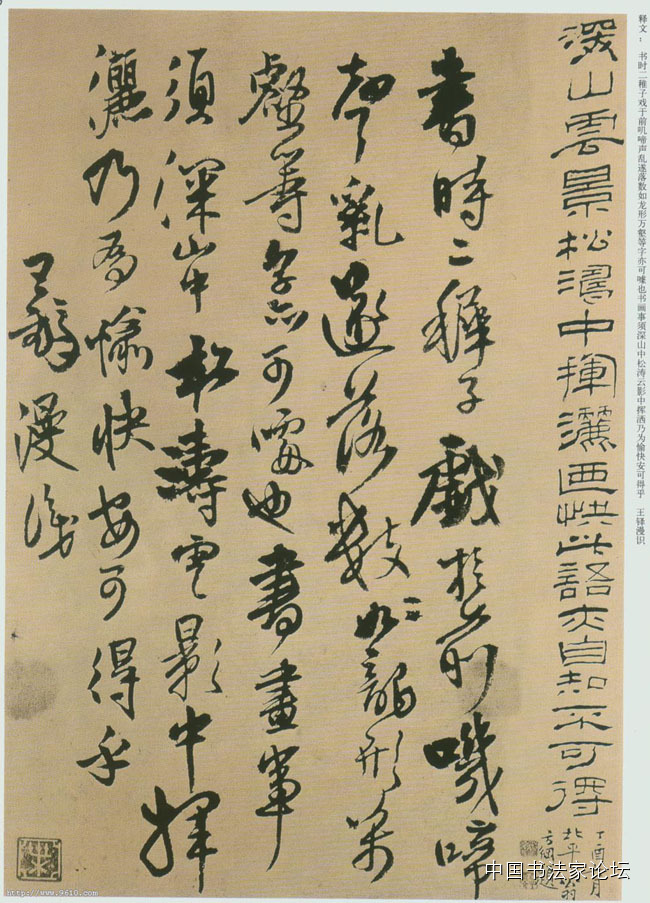 释文： 书时二稚子戏于前叽啼声乱遂落数如龙形万壑等字亦可嘘也书画事须深山中松涛云影中挥洒乃为愉快安可得乎 王铎漫识
深山雲景松濤中揮灑画快此語亦自知不可得
丁酉 月
北平翁
方綱題
書時二稺子戲於前嘰啼
聲亂遂落數如龍形萬
壑等字亦可噱也書畫事
須深山中松濤雲影中揮
灑乃為愉快安可得乎
王鐸漫識
中国书法家论坛
http://www.9610.com